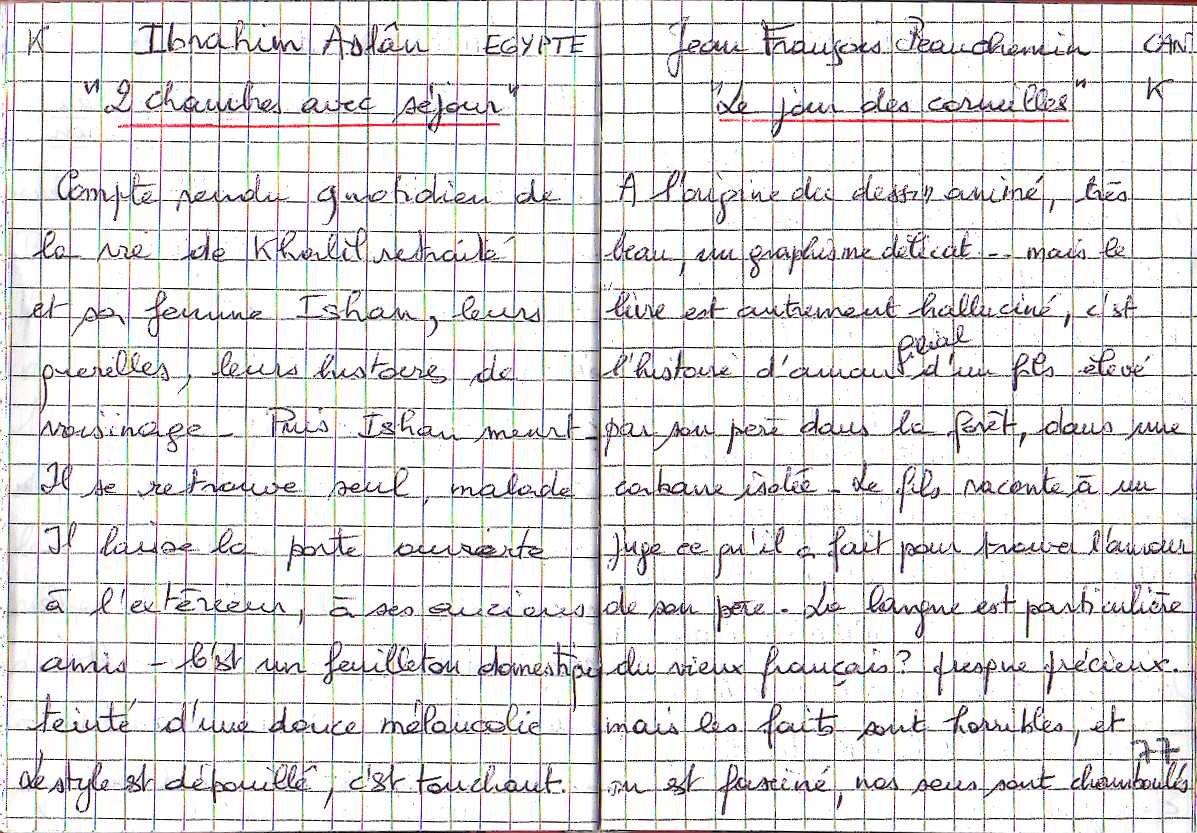 K Ibrahim Aslân EGYPTE
"2 chambres avec séjour"
Compte rendu quotidien de
la vie de Khalil retraité
et sa femme Ishan, leurs
querelles, leurs histoires de
voisinage - Puis Ishan meurt -
Il se retrouve seul, malade
Il laisse la porte ouverte
à l'extérieur, à ses anciens
amis - C'est un feuilleton domestique
teinté d'une douce mélancolie
Le style est dépouillé, c'est touchant.
Jean François Beauchemin CAN.
"Le jour des corneilles" K
A l'origine du dessin animé, très
beau, un graphisme délicat -- mais le
livre est autrement halluciné, c'st
l'histoire d'amour filial d'un fils élevé
par son père dans la forêt, dans une
cabane isolée - Le fils raconte à un
juge ce qu'il a fait pour trouver l'amour
de son père. La langue est particulière
du vieux français? presque précieux.
mais les faits sont horribles, et
on est fasciné, nos sens sont chamboulés
77